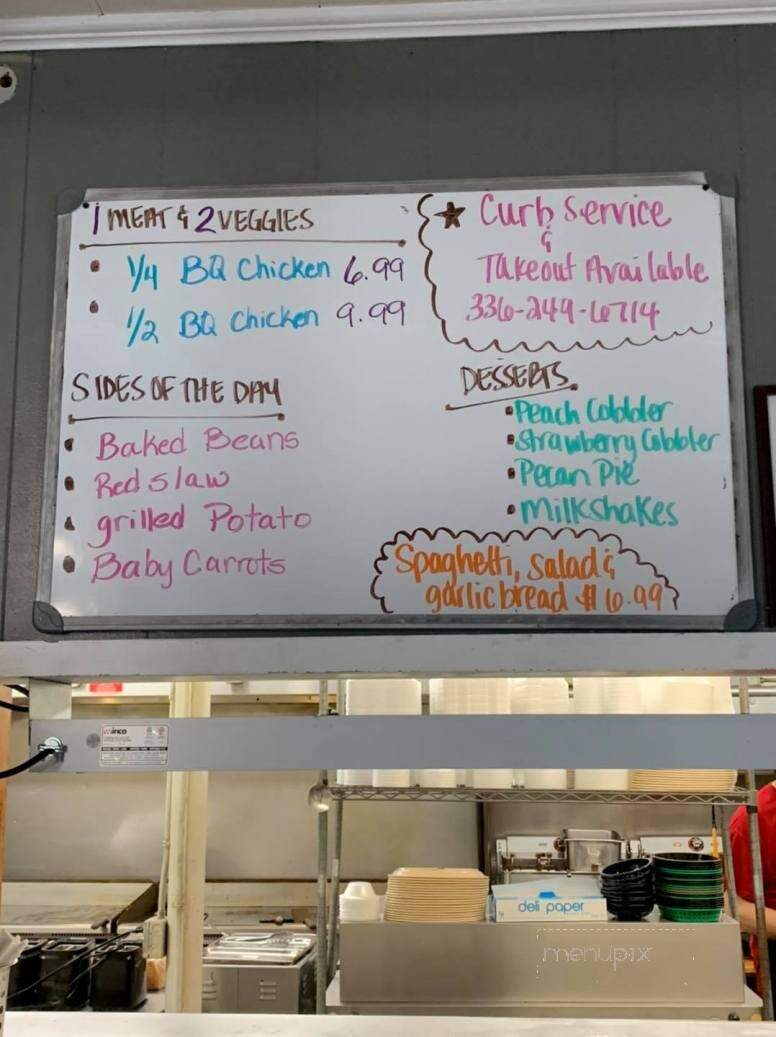 1 MEAT & 2 VEGGIES
• 1/4 BQ Chicken 6.99
• 1/2 BQ Chicken 9.99
★ Curb Service
&
Takeout Available
336-249-6714
SIDES OF THE DAY
• Baked Beans
• Red slaw
• grilled Potato
• Baby Carrots
DESSERTS
• Peach Cobbler
• Strawberry Cobbler
• Pecan Pie
• Milkshakes
Spaghetti, Salad &
garlic bread $ 6.99
winco
deli paper
menupix